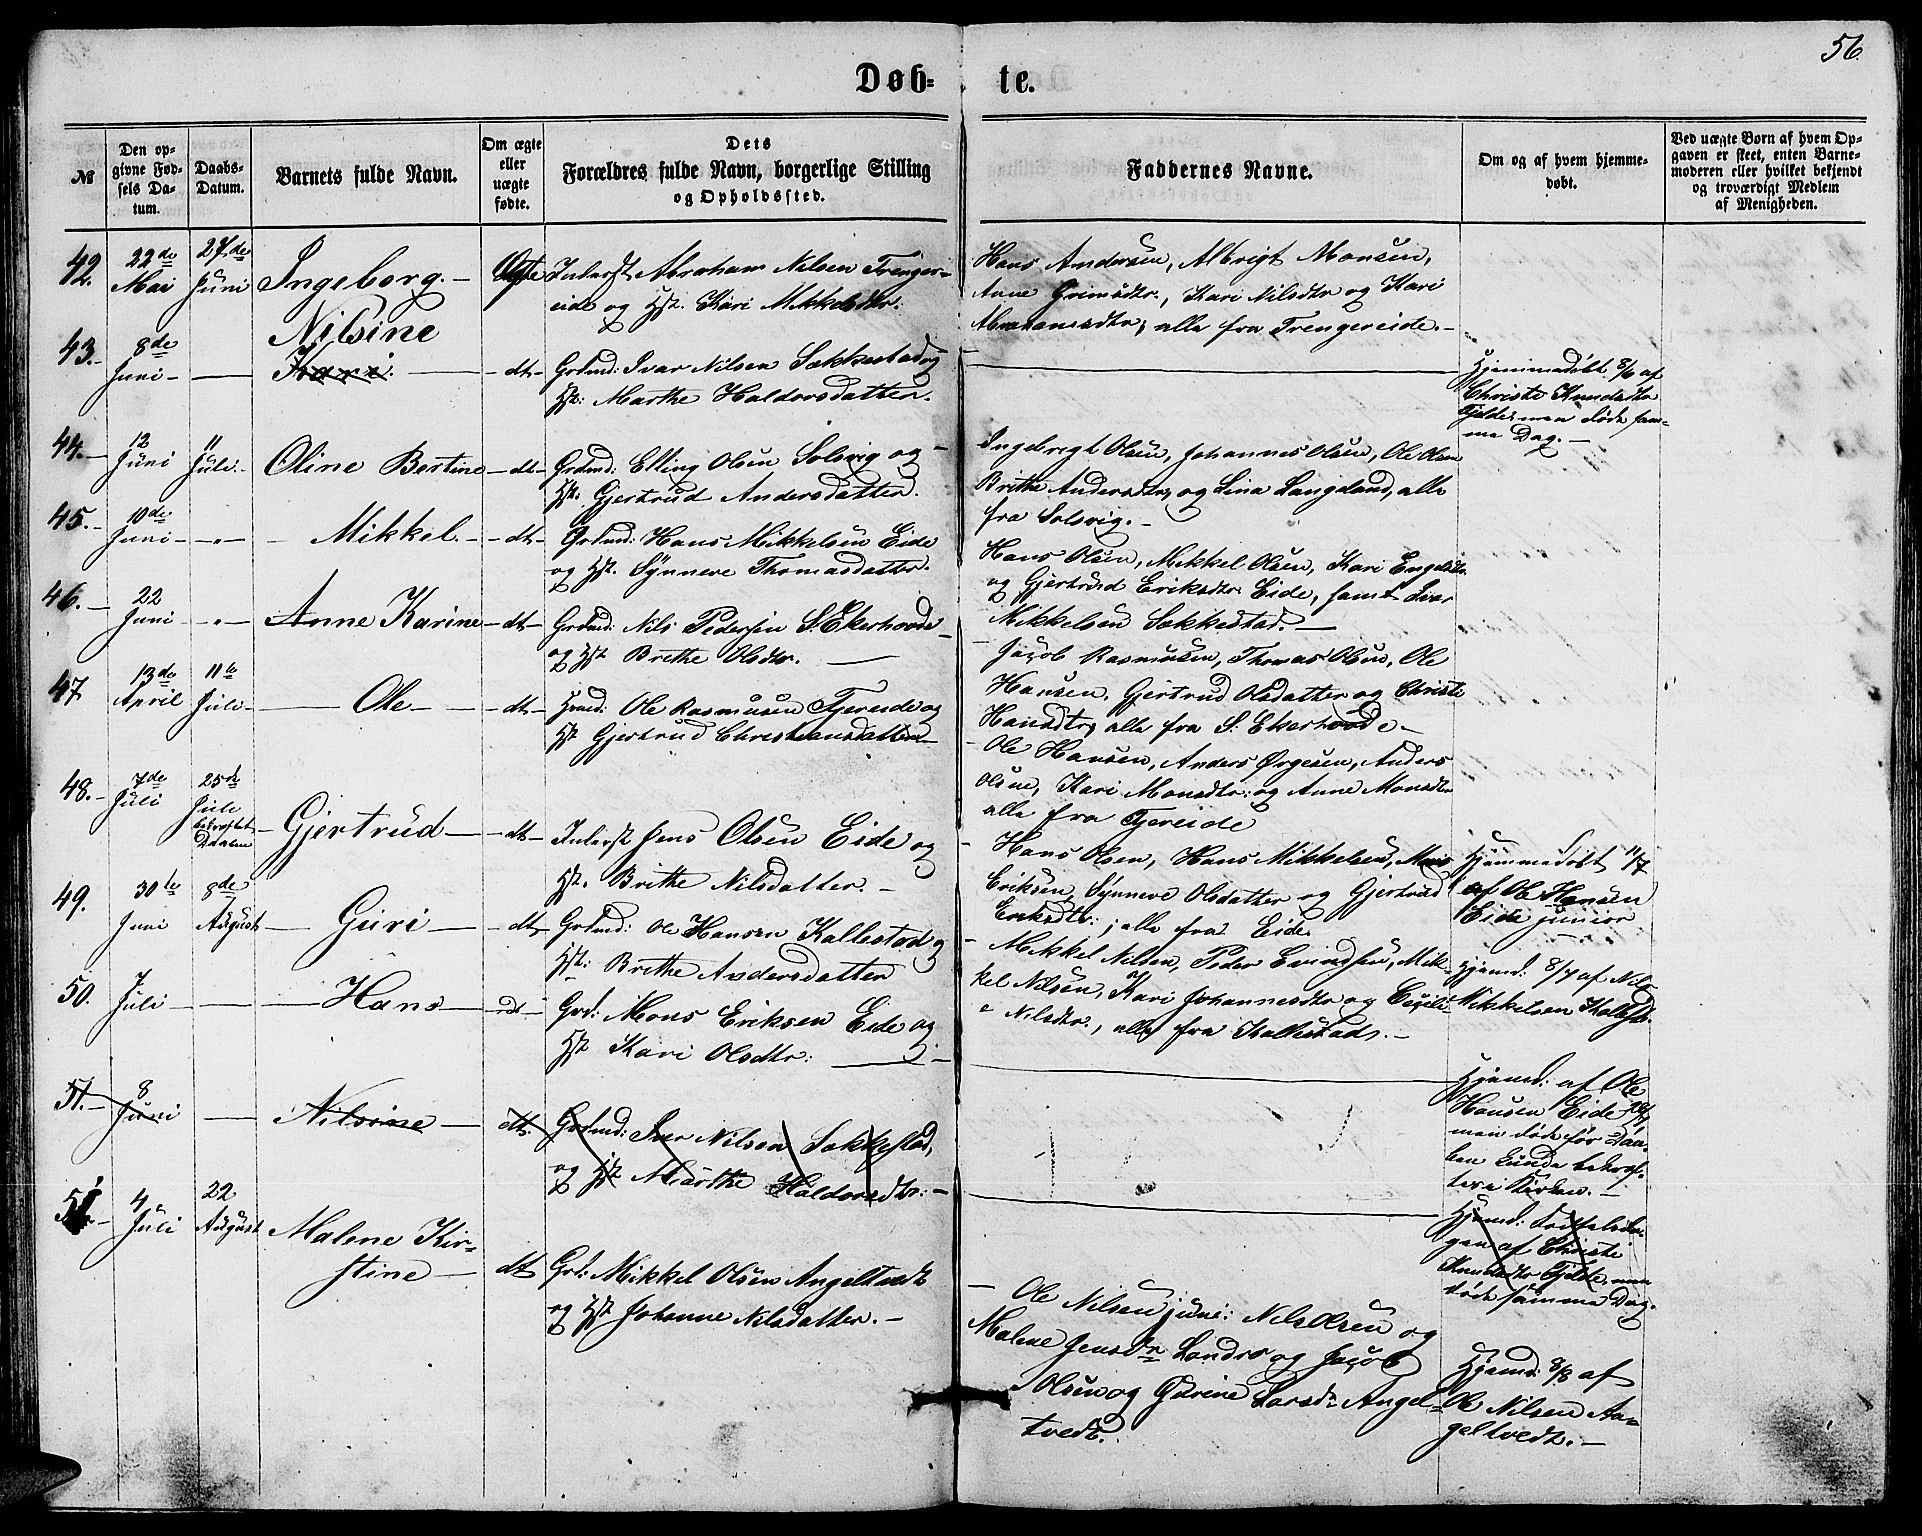 56.
Døb- te.
№ | Den opgivne Fødsels Datum. | Daabs-Datum. | Barnets fulde Navn. | Om ægte eller uægte fødte. | Dets Forældres fulde Navn, borgerlige Stilling og Opholdssted. | Faddernes Navne. | Om og af hvem hjemmedøbt. | Ved uægte Børn af hvem Opgaven er skeet, enten Barnemoderen eller hvilket bekjendt og troværdigt Medlem af Menigheden.
42. 22de Mai 27de Juni Ingeborg. – Ægte Inderst Abraham Nilsen Trenger-
eide og Hst. Kari Mikkelsdtr.
Hans Andersen, Albrigt Monsen,
Anne Grimsdtr., Kari Nilsdtr og Kari
Abrahamsdtr, alle fra Trengereide. –
43. 8de Juni – Nilsine
Kari – dt – Grdmd: Ivar Nilsen Sekkestad og
Hst: Marthe Haldorsdatter.
Hjemmedøbt 8/6 af
Christi Knudsdtr
Fjelde, men døde sam-
me Dag. –
44. – 12 Juni 11 Juli. – Oline Bertine – dt – Grdmd: Elling Olsen Solvig og –
Hst: Gjertrud Andersdatter.
Ingebrigt Olsen, Johannes Olsen, Ole Olsen
Brithe Andersdtr, og Lina Langeland, alle
fra Solsvig. –
45. – 10de Juni – – " – Mikkel. – dt – Grdmd: Hans Mikkelsen Eide
og Hst. Synneve Thomasdatter.
Hans Olsen, Mikkel Olsen, Kari Engelsdtr
og Gjertrud Eriksdtr Eide, samt Ivar
Mikkelsen Sekkestad. –
46. – 22 Juni – " – Anne Karine – dt – Grdmd: Nils Pedersen S. Ekerhovde –
og Hst Brithe Olsdtr. –
– Jacob Rasmussen, Thomas Olsen, Ole
Hansen, Gjertrud Olsdatter og Christi
Hansdtr, alle fra S. Ekerhovde –
47 13de April 11te Juli – Ole – dt – Hmd: Ole Rasmusen Tjereide og
Hst Gjertrud Christiansdatter –
– Ole Hansen, Anders Ørgesen, Anders
Olsen, Kari Monsdtr: og Anne Monsdtr
alle fra Tjereide
48. – 7de Juli 25de Juli
bekræftet
Daaben Gjertrud – dt – Inderst Jens Olsen Eide og
Hst. Brithe Nilsdatter. –
– Hans Olsen, Hans Mikkelsen, Mons
Eriksen, Synneve Olsdatter og Gjertrud
Eriksdtr: ; alle fra Eide.
Hjemmedøbt 11/7
af Ole Hansen
Eide junior
49. 30te Juni 8de August – Guri – dt – Grdmd: Ole Hansen Kallestad og
Hst: Brithe Andersdatter
– Mikkel Nilsen, Peder Evindsen, Mik-
kel Nilsen, Kari Johannesdtr og Cecili-
e Nilsdtr., alle fra Kallestad. –
Hjemd: 8/7 af Nils
Mikkelsen Kallestd.
50. 7 Juli – Hans – dt – Grd: Mons Eriksen Eide og
Hst Kari Olsdtr: –
Hjemd: af Ole
Hansen Eide
men døde før Daa-
ben kunde bekræf-
tes i Kirken. –
51. – 8 Juni – Nilsine – dt. Grdmd: Iver Nilsen Sekkestad,
og Hst Marthe Haldorsdtr: –
Hjemd:
gen af Christi
Knudsdtr Fjelde, men
døde samme Dag.
51. – 4 Juli 22 August Malene Kir-
stine – dt Grd: Mikkel Olsen Angeltvedt
og Hst Johanne Nilsdatter. –
– Ole Nilsen juni: Nils Olsen og
Malene Jensdr Landro og Jacob
Olsen og Gurine Larsdr Angel-
tvedt.
Hjemd: 8/8 af
Ole Nilsen An-
geltvedt. –